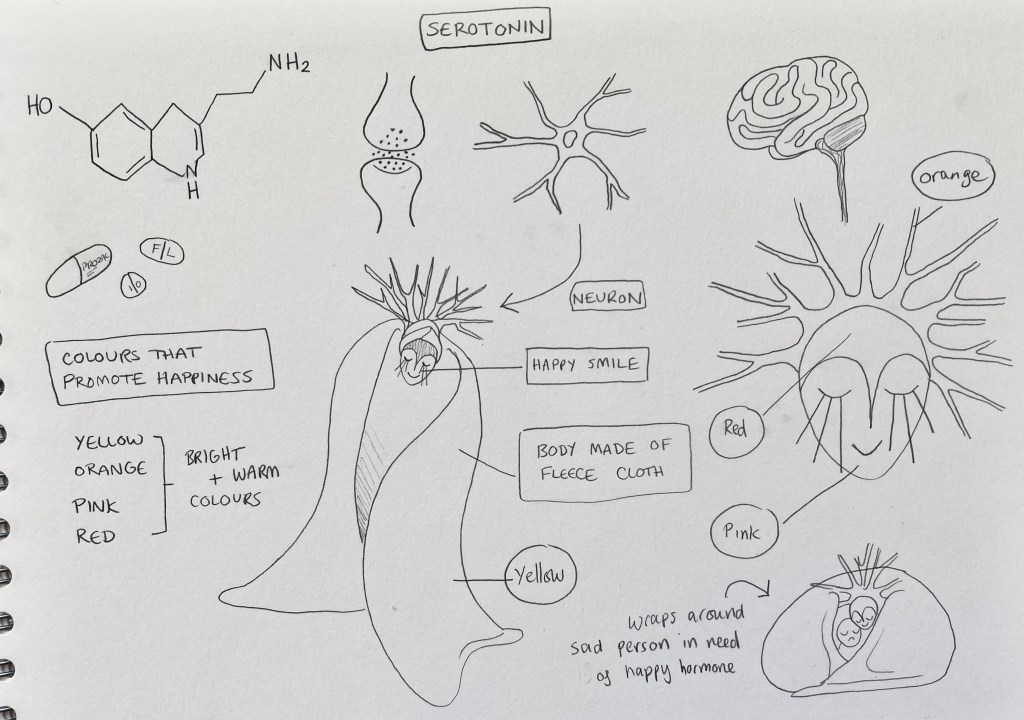 SEROTONIN
HO
NH₂
N
H
PROZAC
F/L
1/0
orange
NEURON
COLOURS THAT
PROMOTE HAPPINESS
HAPPY SMILE
YELLOW
ORANGE
PINK
RED
BRIGHT
+ WARM
COLOURS
BODY MADE OF
FLEECE CLOTH
Red
Pink
Yellow
wraps around
sad person in need
of happy hormone